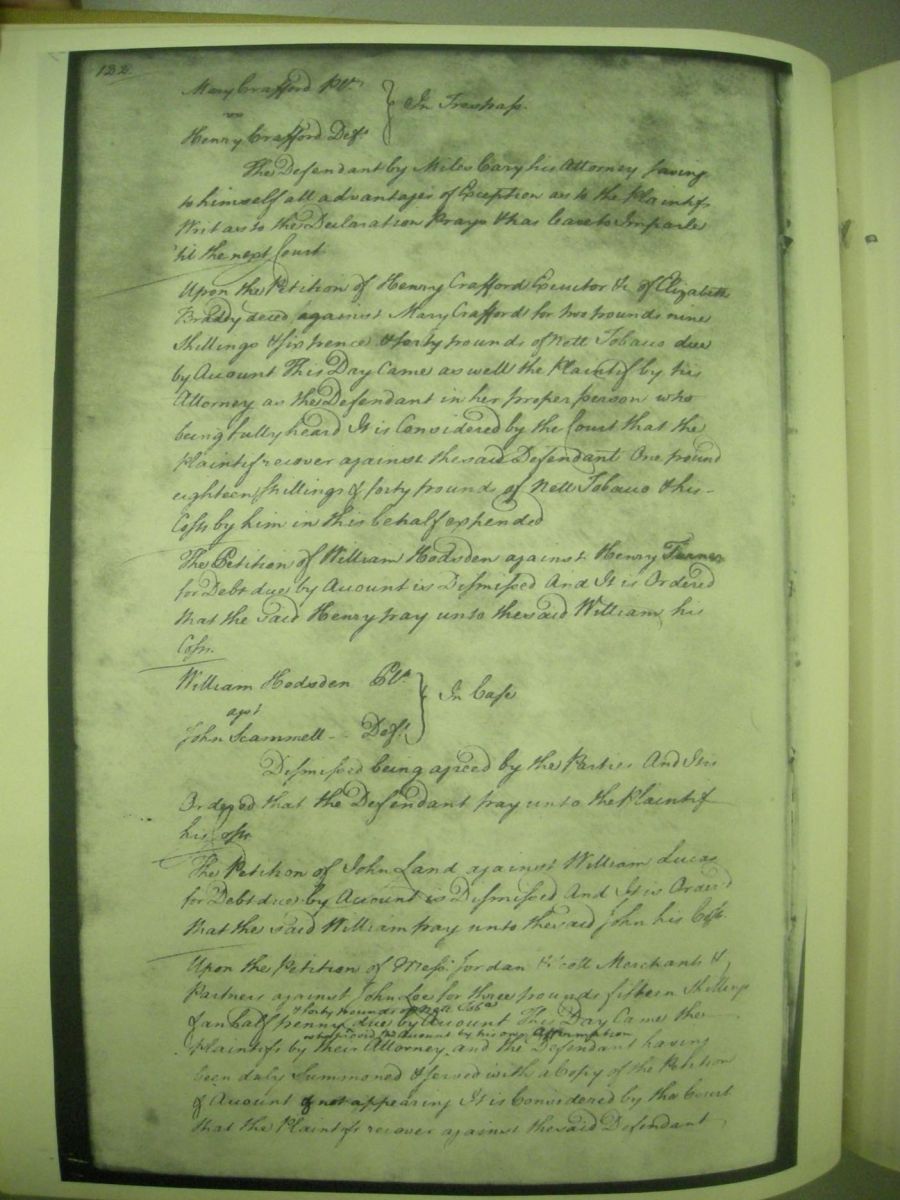 122
Mary Crafford Plt.
vs
Henry Crafford Deft.
} In Trespass.
The Defendant by Miles Cary his Attorney saving
to himself all advantages of Exception as to the Plaintifs
Writ as to the Declaration Prays & has leave to Imparle
'til the next Court
Upon the Petition of Henry Crafford Executor &c of Elizabeth
Braddy deced against Mary Crafford for two pounds nine
Shillings & six pence & forty pounds of Nett Tobacco due
by Account This Day Came as well the Plaintif by his
Attorney as the Defendant in her proper person who
being fully heard It is Considered by the Court that the
Plaintif recover against the said Defendant One pound
eighteen Shillings & forty pounds of Nett Tobacco & his
Costs by him in this behalf expended
The Petition of William Hodsden against Henry Turner
for Debt due by Account is Dismissed And It is Ordered
that the said Henry pay unto the said William his
Costs.
William Hodsden Plt.
agst
John Scammell -- Deft.
} In Case
Dismissed being agreed by the Parties And It is
Ordered that the Defendant pay unto the Plaintif
his Costs
The Petition of John Land against William Lucas
for Debt due by Account is Dismissed And It is Order'd
that the said William pay unto the said John his Costs.
Upon the Petition of Messrs. Jordan & Scott Merchants &
Partners against John Lee for three pounds fifteen Shillings
& forty pounds of nett Tobo
& an half penny due by Account This Day Came the
who proved the Account by his own Assumption
Plaintifs by their Attorney and the Defendant having
been duly Summoned & served with a Copy of the Petition
& Account & not appearing It is Considered by the Court
that the Plaintifs recover against the said Defendant